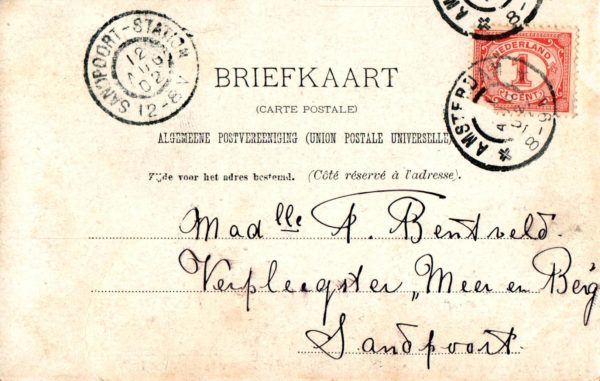 SANDPOORT-STATION
12 AUG 02
12-8V
AMS
NEDERLAND
1
CENT
AMSTERDAM
8-9V
BRIEFKAART
(CARTE POSTALE)
ALGEMEENE POSTVEREENIGING (UNION POSTALE UNIVERSELLE)
Zijde voor het adres bestemd. (Côté réservé à l'adresse).
Madlle A. Bentveld.
Verpleegster „Meer en Berg
Sandpoort.